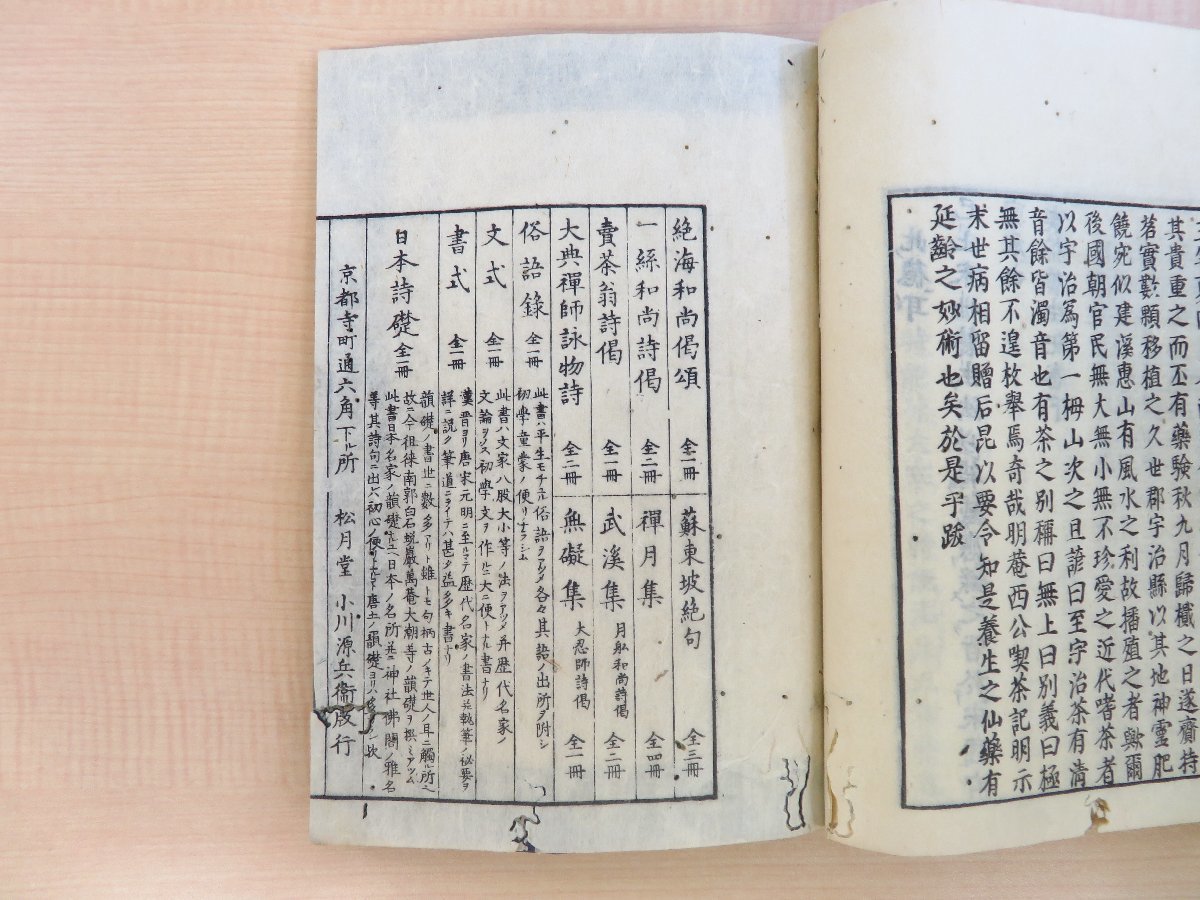 其貴重之而丕有藥驗秋九月歸檥之日遂齎持
茗實數顆移植之久世郡宇治縣以其地神靈肥
饒宛似建溪惠山有風水之利故播殖之者歟爾
後國朝官民無大無小無不珍愛之近代嗜茶者
以宇治爲第一栂山次之且諺曰至宇治茶有清
音餘皆濁音也有茶之別稱曰無上曰別義曰極
無其餘不遑枚舉焉奇哉明菴西公喫茶記明示
末世病相畱贈后昆以要令知是養生之仙藥有
延齡之妙術也矣於是乎跋
絕海和尚偈頌 全一冊 蘇東坡絕句 全三冊
一絲和尚詩偈 全二冊 禪月集 全四冊
賣茶翁詩偈 全一冊 武溪集 月舩和尚詩偈 全二冊
大典禪師詠物詩 全二冊 無礙集 大忍師詩偈 全一冊
俗語錄 全一冊 此書ハ平生モチユル俗語ヲアツメ各々其語ノ出所ヲ附シ
初學童蒙ノ便リナラシム
文式 全一冊 此書ハ文家八股大小等ノ法ヲアツメ并歷代名家ノ
文論ヲノス初學文ヲ作ルニ大ニ便トナル書ナリ
書式 全一冊 漢晋ヨリ唐宋元明ニ至ルマテ歷代名家ノ書法并執筆ノ秘要ヲ
詳ニ説ク筆道ニヲイテハ甚タ益多キ書ナリ
日本詩礎 全一冊 韻礎ノ書世ニ數多アリト雖トモ句柄古ノキテ世人ノ耳ニ觸ル所
故ニ今徂徠南郭白石蛻巖萬菴大潮等ノ韻礎ヲ撰ミアツム
此書日本名家ノ韻礎ナルユニ日本ノ名所并ニ神社佛閣ノ雅名
等其詩句ニ出
京都寺町通六角下ル所 松月堂 小川源兵衞版行